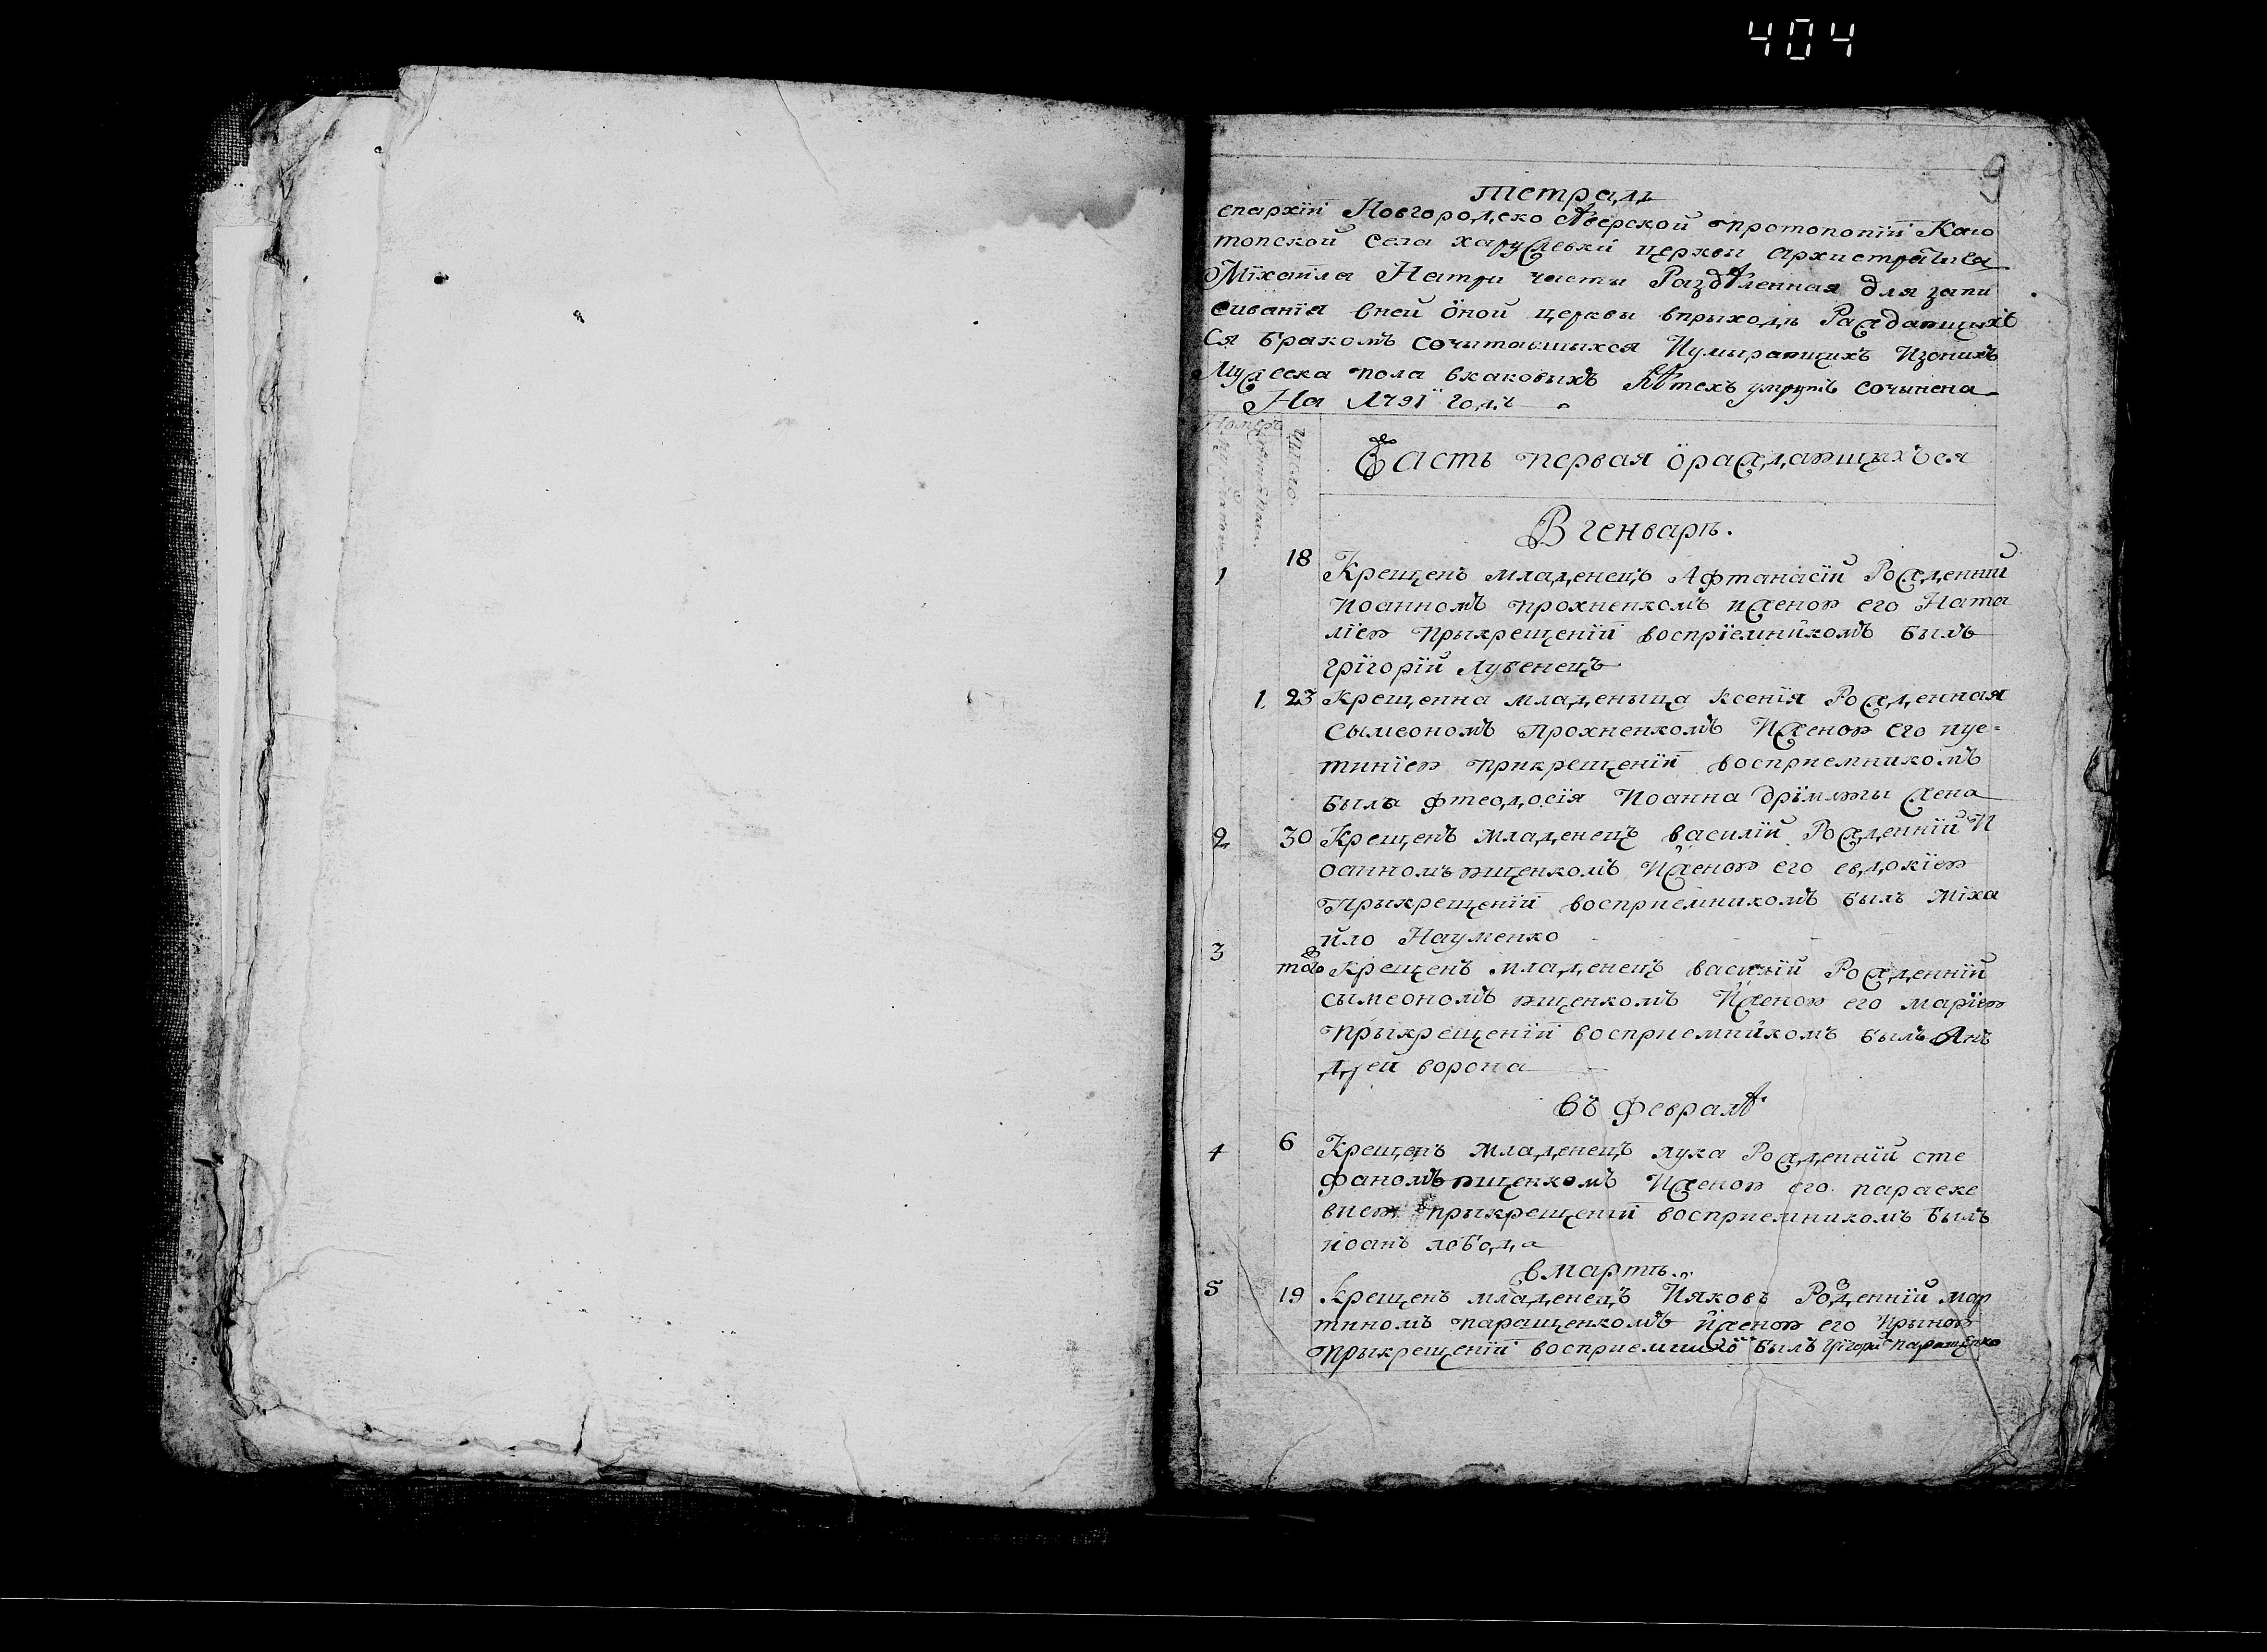 404
9
Тетрадь
епархїи Новгородско Сѣверской протопопїи Коно
топской села харужевки церкви архистратига
Міхаила На три части Раздѣленная для запи
сиванїя вней оной церкви вприходѣ Раждающихъ
ся бракомъ сочитавшихся И умырающихъ Изоныхъ
Мужеска пола вкаковыхъ лѣтехъ умрутъ сочынена
На 1791 годъ
Число.
Часть первая о раждающыхъся
В генварѣ.
1 18 Крещенъ младенецъ Афтанасїи Рожденнїй
Иоанномъ прохненкомъ иженою его Ната
лїею прыкрещенїи воспрїемникомъ былъ
грїгорїй лубенецъ
1 23 Крещенна младеныца ксенїя Рожденная
сымеономъ прохненкомъ Ижено͡ю его иус-
тинїею прикрещенїи восприемникомъ
была фтеодосїя Иоанна дрїмлюгы жена
2 30 Крещенъ младенецъ василїй Рожденнїй И
оанномъ ющенкомъ Иженою его евдокїею
Прыкрещенїи восприемникомъ былъ міха
йло Науменко
3 тож Крещенъ младенецъ василїй Рожденнїй
сымеономъ ющенкомъ Иженою его марїею
прыкрещенїи восприемникомъ былъ Ан
дрей ворона
Въ февралѣ
4 6 Крещенъ младенецъ лука Рожденнїй сте
фаномъ ющенкомъ Иженою его параске
виею прыкрещенїи восприемникомъ былъ
иоанъ лобода
в мартѣ.
5 19 Крещенъ младенецъ Ияковъ Рожденнїй мар
тиномъ паращенкомъ Иженою его Ирыною
прыкрещенїи восприемнико былъ грїгори паращенко